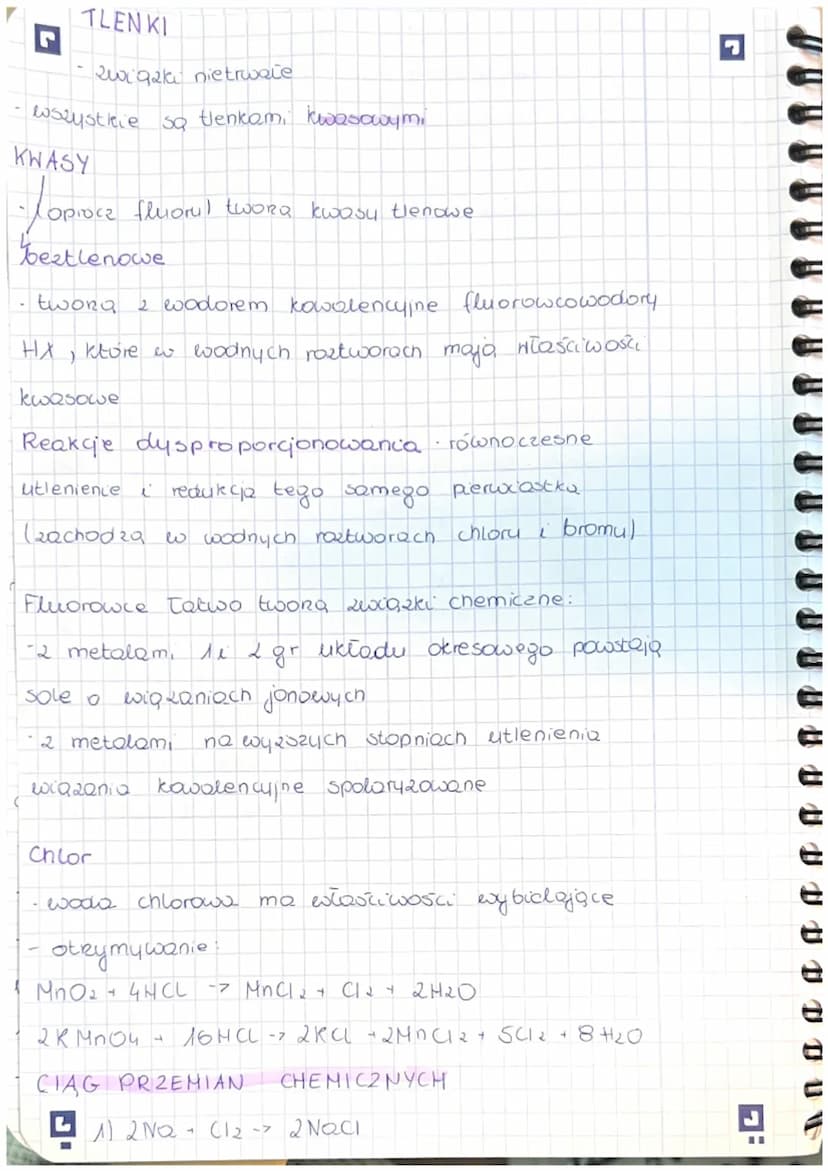 TLENKI
- związki nietrwałe
- wszystkie są tlenkami kwasowymi
KWASY
- (oprócz fluoru) tworzą kwasy tlenowe
beztlenowe
- tworzą z wodorem kowalencyjne fluorowcowodory
HX, które w wodnych roztworach mają właściwości
kwasowe
Reakcje dysproporcjonowania - równoczesne
utlenienie i redukcja tego samego pierwiastka
(zachodzą w wodnych roztworach chloru i bromu)
Fluorowce łatwo tworzą związki chemiczne:
- z metalami 1 i 2 gr układu okresowego powstają
sole o wiązaniach jonowych
- z metalami na wyższych stopniach utlenienia
wiązania kowalencyjne spolaryzowane
Chlor
- woda chlorowa ma właściwości wybielające
- otrzymywanie:
MnO2 + 4HCl -> MnCl2 + Cl2 + 2H2O
2KMnO4 + 16HCl -> 2KCl + 2MnCl2 + 5Cl2 + 8H2O
CIĄG PRZEMIAN CHEMICZNYCH
1) 2Na + Cl2 -> 2NaCl